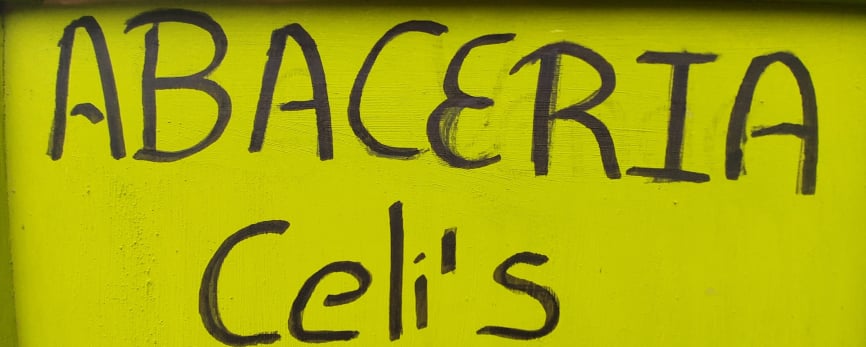 ABACERIA
Celi's